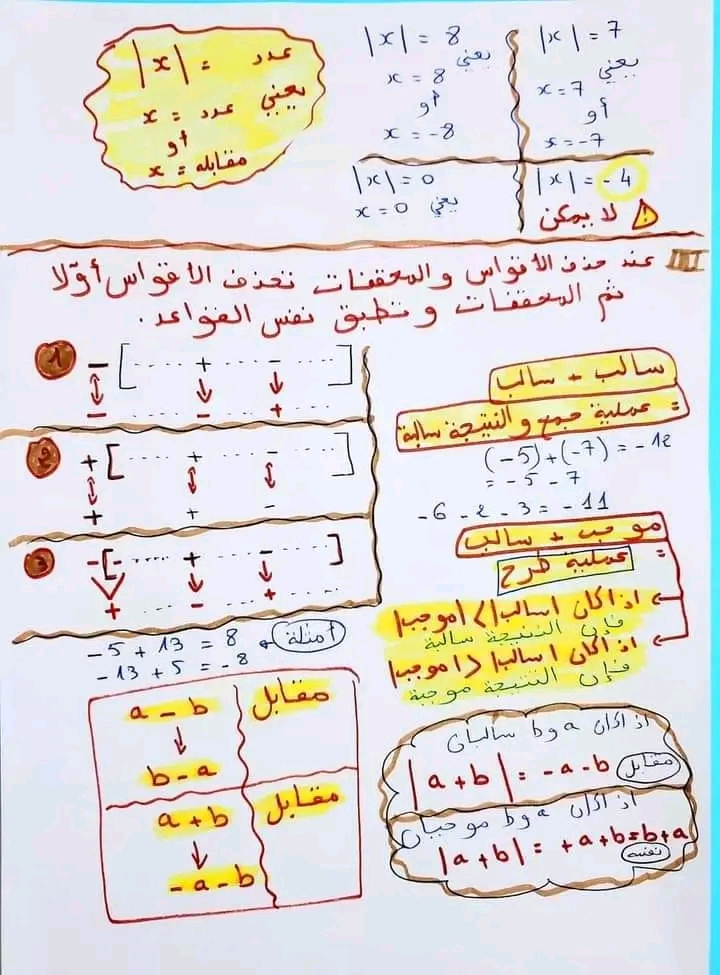 |x| = عدد
يعني
x = عدد
أو
x = مقابله
|x| = 7
يعني
x = 7
أو
x = -7
|x| = 8
يعني
x = 8
أو
x = -8
|x| = -4
لا يمكن
|x| = 0
يعني x = 0
III عند حذف الأقواس والمعقفات نحذف الأقواس أوّلا
ثم المعقفات و نطبق نفس القواعد.
1 - [ ..... + ..... - ..... ]
- ..... - ..... +
2 + [ ..... + ..... - ..... ]
+ + -
3 -[- ..... + ..... - ..... ]
+ ..... - ..... +
سالب + سالب
= عملية جمع و النتيجة سالبة
(-5) + (-7) = -12
= -5 - 7
-6 - 2 - 3 = -11
موجب + سالب
= عملية طرح
اذا كان |سالب| > |موجب|
فإن النتيجة سالبة
اذا كان |سالب| < |موجب|
فإن النتيجة موجبة
أمثلة
-5 + 13 = 8
-13 + 5 = -8
مقابل
a - b
b - a
مقابل
a + b
-a - b
اذا كان a و b سالبان
|a + b| = -a - b مقابل
اذا كان a و b موجبان
|a + b| = +a + b = b + a
نفسه